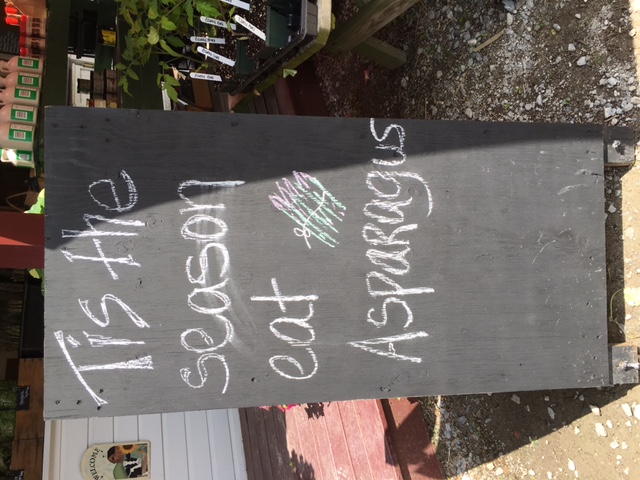 Tis the
season
eat
Asparagus
WELCOME